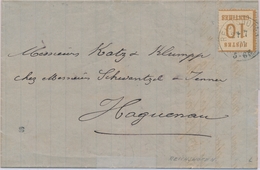 POSTES
10
CENTIMES
Messieurs Katz & Klumpp
chez Messieurs Schwentzel & Tenner
Haguenau